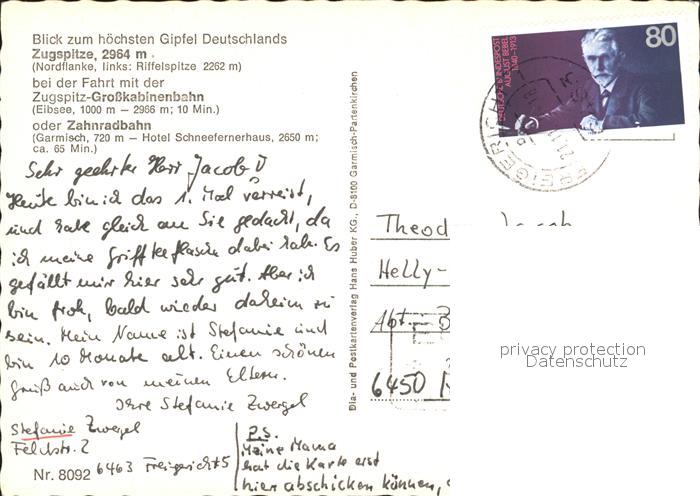 Blick zum höchsten Gipfel Deutschlands
Zugspitze, 2964 m
(Nordflanke, links: Riffelspitze 2262 m)
bei der Fahrt mit der
Zugspitz-Großkabinenbahn
(Eibsee, 1000 m — 2966 m; 10 Min.)
oder Zahnradbahn
(Garmisch, 720 m — Hotel Schneefernerhaus, 2650 m;
ca. 65 Min.)
Sehr geehrter Herr Jacob!
Heute bin ich das 1. Mal verreist,
und habe gleich an Sie gedacht, da
ich meine Griffteeflasche dabei hab. Es
gefällt mir hier sehr gut. Aber ich
bin froh, bald wieder daheim zu
sein. Mein Name ist Stefanie und
bin 10 Monate alt. Einen schönen
Gruß auch von meinen Eltern.
Ihre Stefanie Zwergel
Stefanie Zwergel
Feldstr. 2
6463 Freigericht 5
Nr. 8092
P.S.
Meine Mama
hat die Karte erst
hier abschicken können,
Dia- und Postkartenverlag Hans Huber KG., D-8100 Garmisch-Partenkirchen
80
DEUTSCHE BUNDESPOST
AUGUST BEBEL
1840-1913
FREIGERICHT
Theod Jacob
Helly-
Abt.
6450
privacy protection
Datenschutz